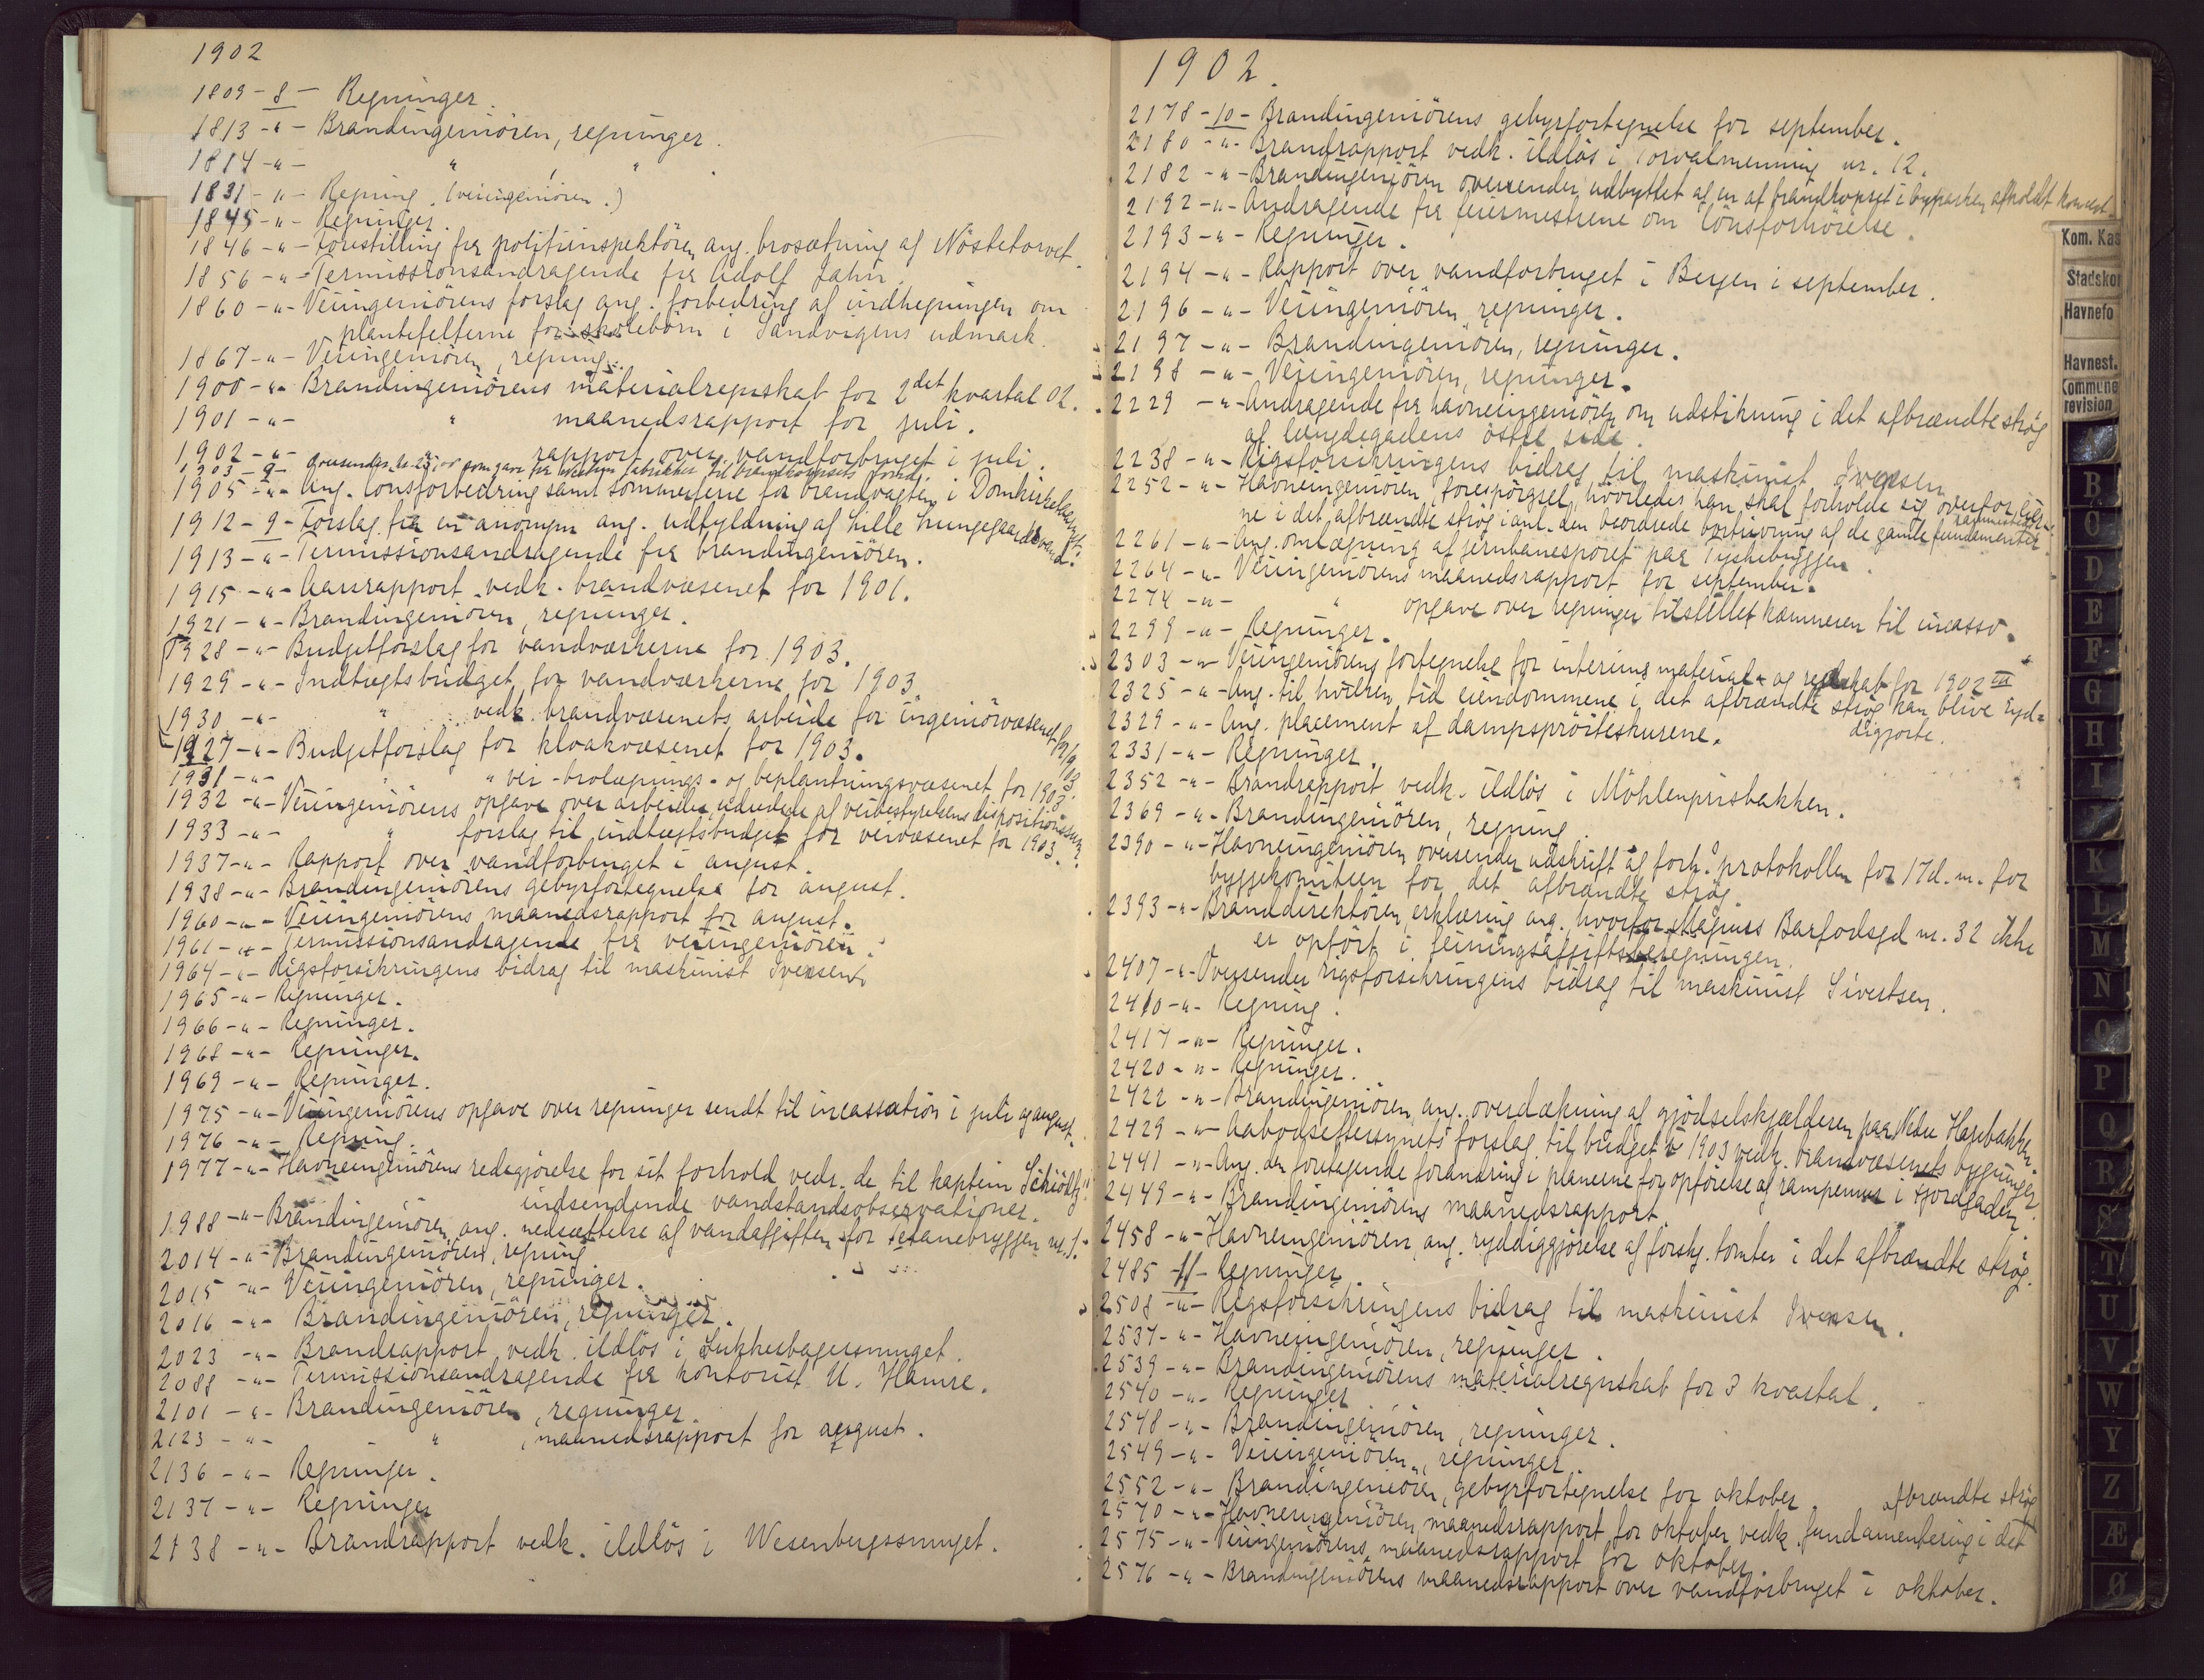 1902
1809 - 8 - Regninger.
1813 - " - Brandingeniören, regninger.
1814 - " - " "
1831 - " - Regning. (veiingeniören.)
1845 - " - Regninger.
1846 - " - Forestilling fra politiinspektören ang. brosætning af Nöstetorvet.
1856 - " - Permissionsandragende fra Adolf Jahn.
1860 - " - Veiingeniörens forslag ang. forbedring af indhegningen om
plantefelterne for skolebörn i Sandvigens udmark.
1867 - " - Veiingeniören, regning.
1900 - " - Brandingeniörens materialregnskab for 2det kvartal 02.
1901 - " - " maanedsrapport for juli.
1902 - " - " rapport over vandforbruget i juli.
1903 - 9 - fra til brandkorpsets
1905 - " - Ang. lönsforbedring samt sommerferie for brandvagten i Domkirketaarnet.
1912 - 9 - Forslag fra en anonym ang. udfyldning af Lille Lungegaardsvand.
1913 - " - Permissionsandragende fra brandingeniören.
1915 - " - Aarsrapport vedk. brandvæsenet for 1901.
1921 - " - Brandingeniören, regninger.
1928 - " - Budgetforslag for vandværkerne for 1903.
1929 - " - Indtægtsbudget for vandværkerne for 1903.
1930 - " - " vedk. brandvæsenets arbeide for ingeniörvæsenet
1927 - " - Budgetforslag for kloakvæsenet for 1903.
1931 - " - " " vei- brolægnings- og beplantningsvæsenet for 1903.
1932 - " - Veiingeniörens opgave over arbeider, udredede af veibestyrelsens dispositionssum
1933 - " - " forslag til indtægtsbudget for veivæsenet for 1903.
1937 - " - Rapport over vandforbruget i august.
1938 - " - Brandingeniörens gebyrfortegnelse for august.
1960 - " - Veiingeniörens maanedsrapport for august.
1961 - " - Permissionsandragende fra veiingeniören.
1964 - " - Rigsforsikringens bidrag til maskinist Iversen
1965 - " - Regninger.
1966 - " - Regninger.
1968 - " - Regninger.
1969 - " - Regninger.
1975 - " - Veiingeniörens opgave over regninger sendt til incassation i juli og august.
1976 - " - Regning.
1977 - " - Havneingeniörens redegjörelse for sit forhold vedr. de til kaptein Schiötz
indsendende vandstandsobservationer.
1988 - " - Brandingeniören ang. nedsættelse af vandafgiften for bryggen nr. 1.
2014 - " - Brandingeniören, regning
2015 - " - Veiingeniören, regninger.
2016 - " - Brandingeniören, regninger.
2023 - " - Brandrapport vedk. ildlös i Sukkerbagersmuget.
2088 - " - Permissionsandragende fra kontorist U. Hamre.
2101 - " - Brandingeniören, regninger.
2123 - " - " , maanedsrapport for august.
2136 - " - Regninger.
2137 - " - Regninger
2138 - " - Brandrapport vedk. ildlös i Wesenbergssmuget.
1902.
2178 - 10 - Brandingeniörens gebyrfortegnelse for september.
2180 - " - Brandrapport vedk. ildlös i Torvalmenning nr. 12.
2182 - " - Brandingeniören oversender udbyttet af en af brandkorpset i byparken afholdt koncert.
2192 - " - Andragende fra feiermestrene om lönsforhöielse.
2193 - " - Regninger.
2194 - " - Rapport over vandforbruget i Bergen i september.
2196 - " - Veiingeniören, regninger.
2197 - " - Brandingeniören, regninger.
2198 - " - Veiingeniören, regninger.
2229 - " - Andragende fra havneingeniören om udstikning i det afbrændte strög
af Longdegadens östre side.
2238 - " - Rigsforsikringens bidrag til maskinist Iversen
2252 - " - Havneingeniören, forespörgsel hvorledes han skal forholde sig overfor eier-
ne i det afbrændte strög i anl. den beordrede bortrivning af de gamle fundamenter.
2261 - " - Ang. omlægning af jernbanesporet paa Tyskebryggen.
2264 - " - Veiingeniörens maanedsrapport for september.
2274 - " - " opgave over regninger tilstillet kæmneren til incasso.
2299 - " - Regninger.
2303 - " - Veiingeniörens fortegnelse for interims material- og redskab for 1902 III
2325 - " - Ang. til hvilken tid eiendommene i det afbrændte strög kan blive ryd-
diggjorte.
2329 - " - Ang. placement af dampspröiteskurene.
2331 - " - Regninger.
2352 - " - Brandrapport vedk. ildlös i Möhlenprisbakken.
2369 - " - Brandingeniören, regning.
2390 - " - Havneingeniören oversender udskrift af forh. protokollen for 17 d. m. for
byggekomiteen for det afbrændte strög.
2393 - " - Branddirektören, erklæring ang. hvorfor Magnus Barfodsgd nr. 32 ikke
er opfört i feiningsafgiftsberegningen.
2407 - " - Oversender rigsforsikringens bidrag til maskinist Sivertsen.
2410 - " - Regning.
2417 - " - Regninger.
2420 - " - Regninger.
2422 - " - Brandingeniören ang. overdækning af gjödselskjælderen paa Nedre Hapebakken.
2429 - " - Aabodseftersynets forslag til budget i 1903 vedk. brandvæsenets bygninger.
2441 - " - Ang. den foretagende forandring i planerne for opförelse af ramperne i Fjordgaden.
2449 - " - Brandingeniörens maanedsrapport.
2458 - " - Havneingeniören ang. ryddiggjörelse af forskj. tomter i det afbrændte strög.
2485 - 11 - Regninger.
2508 - " - Rigsforsikringens bidrag til maskinist Iversen.
2537 - " - Havneingeniören, regninger.
2539 - " - Brandingeniörens materialregnskab for 3 kvartal.
2540 - " - Regninger
2548 - " - Brandingeniören, regninger.
2549 - " - Veiingeniören, regninger.
2552 - " - Brandingeniören, gebyrfortegnelse for oktober.
2570 - " - Havneingeniören, maanedsrapport for oktober vedk. fundamentering i det
afbrændte strög
2575 - " - Veiingeniörens maanedsrapport for oktober.
2576 - " - Brandingeniörens maanedsrapport over vandforbruget i oktober.
Kom. Kas
Stadskon
Havnefo
Havnest.
Kommune
revision
B
C
D
E
F
G
H
I
J
K
L
M
N
O
P
Q
R
S
T
U
V
W
Y
Z
Æ
Ø